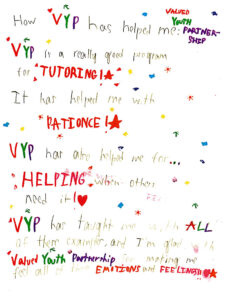 How VYP has helped me:
VALUED YOUTH PARTNER-SHIP
VYP is a really good program
for TUTORING!
It has helped me with
PATIONCE!
VYP has also helped me for...
HELPING when others
need it!
VYP has taught me with ALL
of these examples, and I'm glad
Valued Youth Partnership for making me
feel all of these EMOTIONS and FEELINGS!